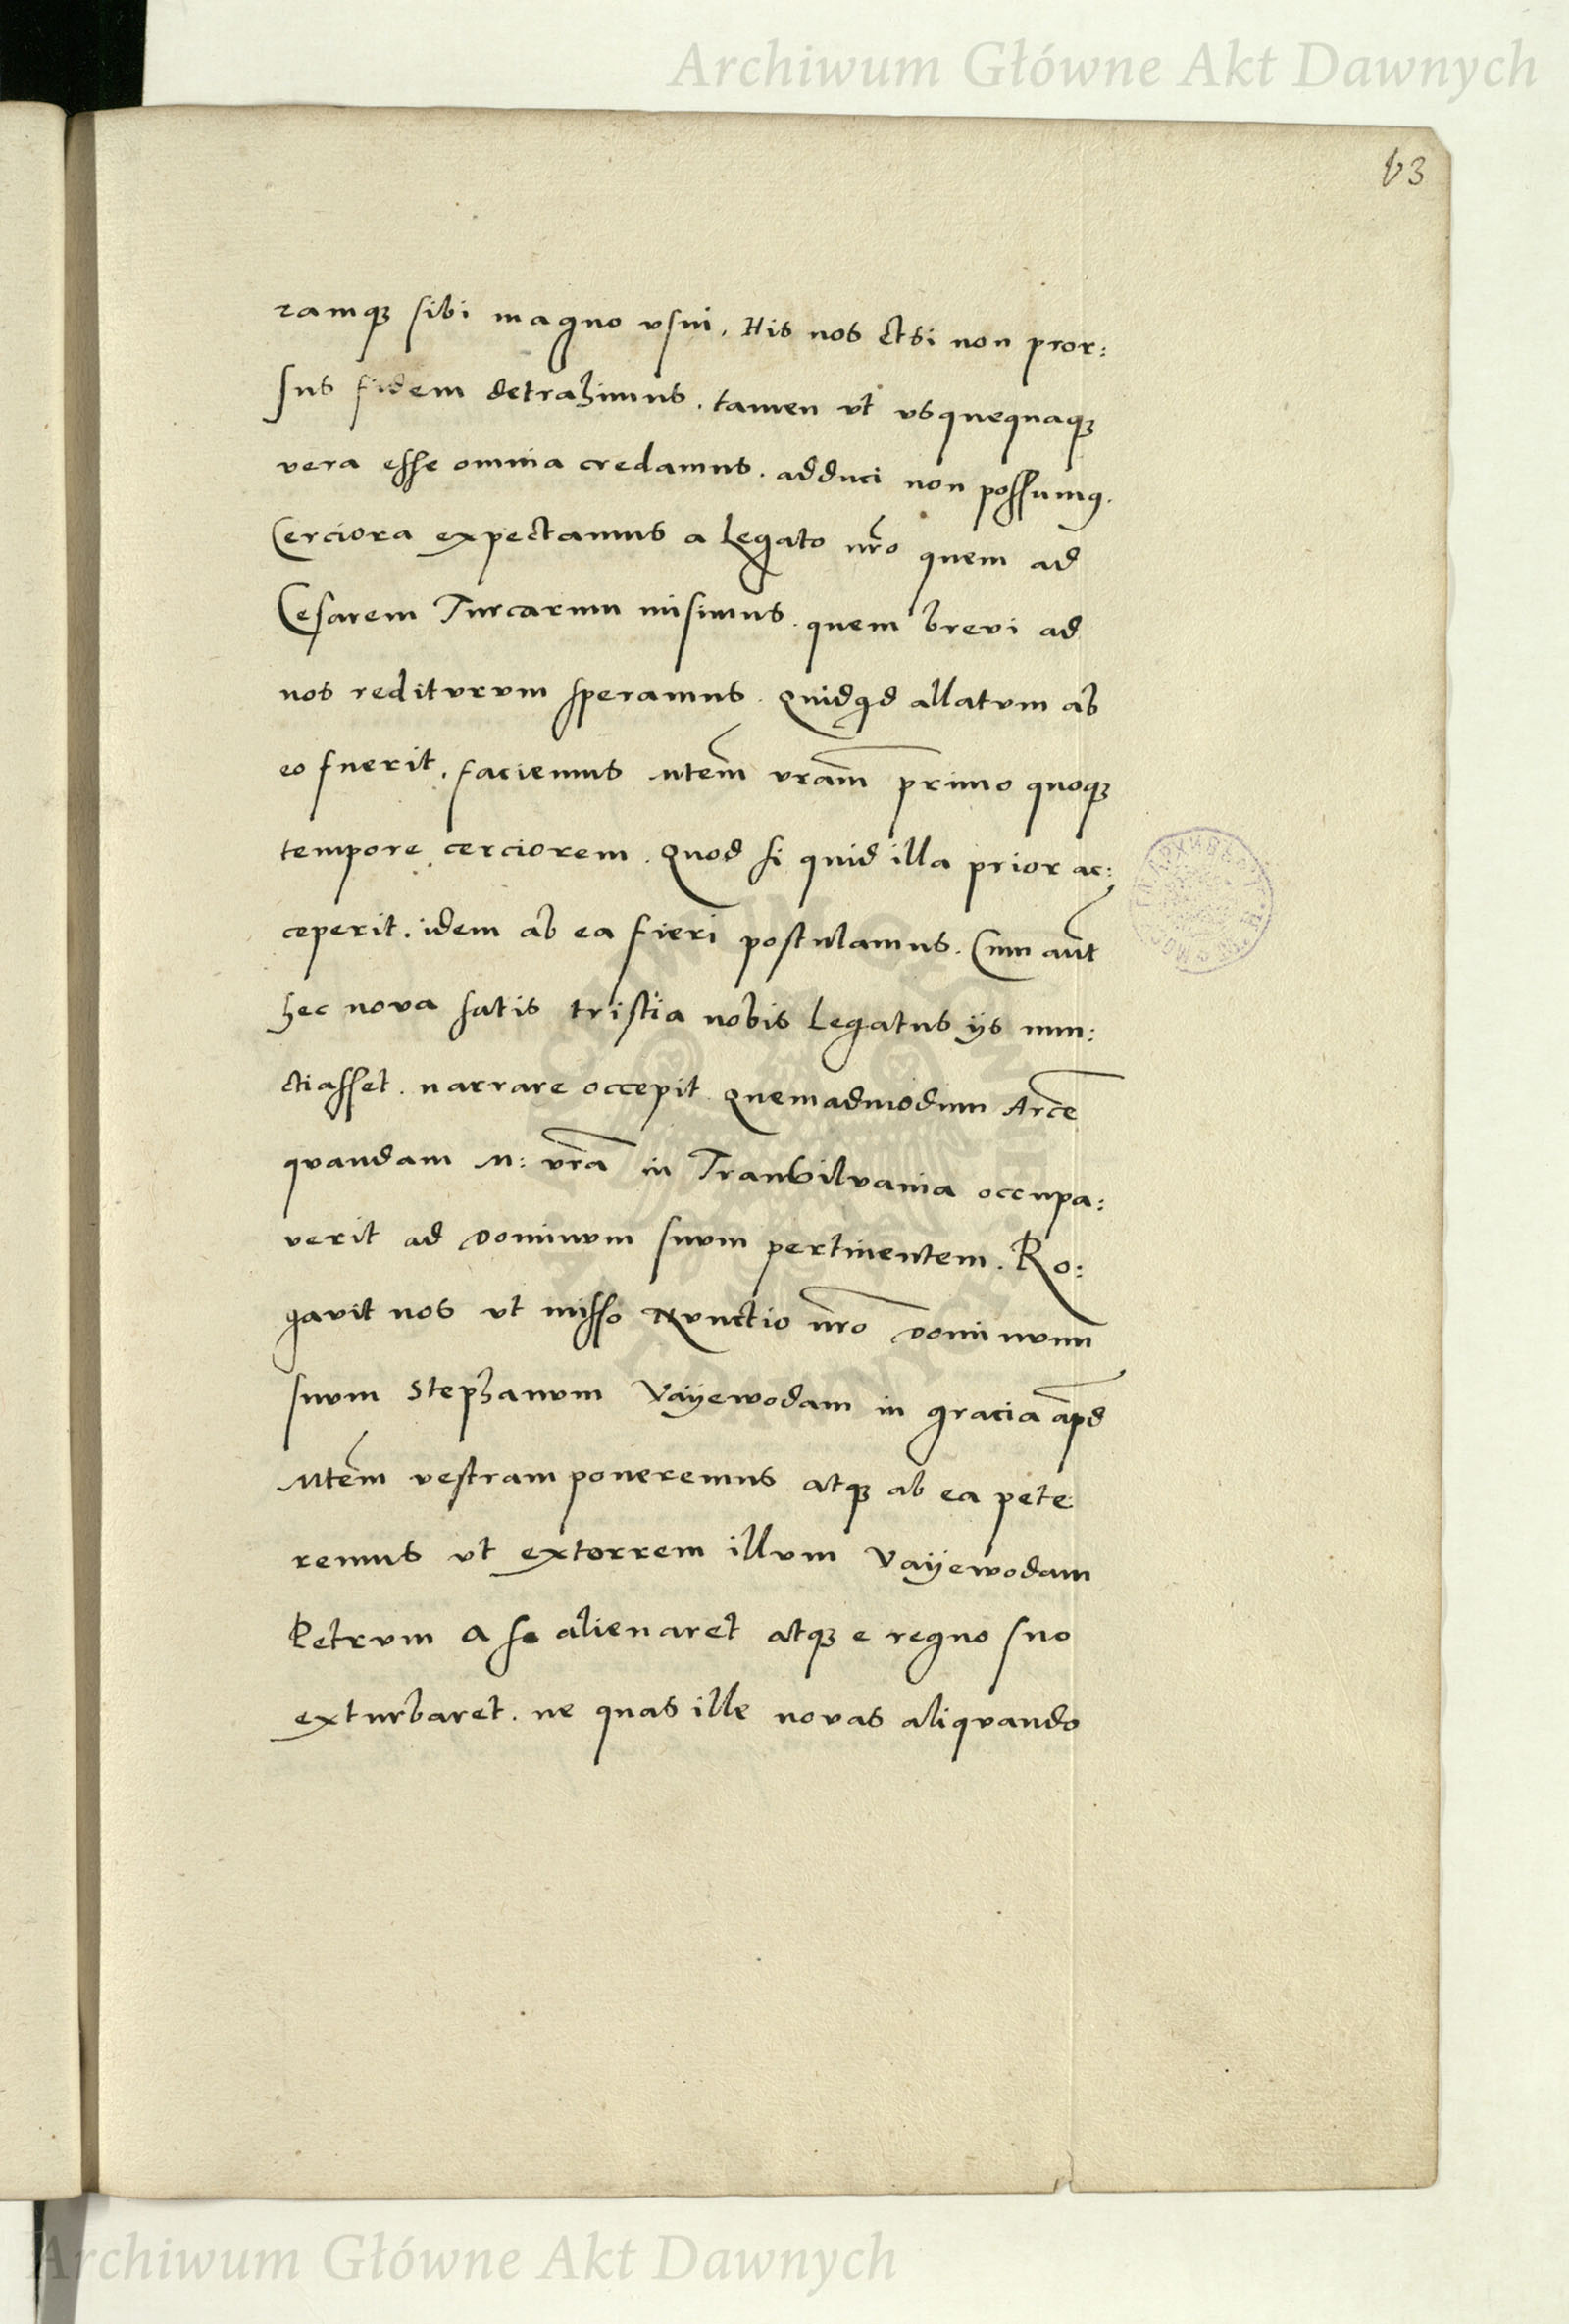 Archiwum Główne Akt Dawnych
63
ramqꝫ sibi magno vsui. His nos etsi non pror:
sus fidem detrahimus. tamen vt vsquequaqꝫ
vera esse omnia credamus. adduci non possumꝰ.
Cerciora expectamus a Legato nr̃o quem ad
Cesarem Turcarum misimus. quem brevi ad
nos rediturum speramus. Quidqd allatum ab
eo fuerit. faciemus Mtem̃ vram̃ primo quoqꝫ
tempore cerciorem. Quod si quid illa prior ac:
ceperit. idem ab ea fieri postulamus. Cum aut̃
hec nova satis tristia nobis Legatus ijs nun:
ctiasset. narrare occepit quemadmodum Arcẽ
quandam M: vrã in Transsilvania occupa:
verit ad Dominum suum pertinentem. Ro:
gavit nos vt misso Nunctio nr̃o Dominum
suum Stephanum Vayewodam in gracia apd̃
Mtem̃ vestram poneremus atqꝫ ab ea pete
remus vt extorrem illum Vayewodam
Petrum a se alienaret atqꝫ e regno suo
exturbaret. ne quas ille novas aliquando
Archiwum Główne Akt Dawnych